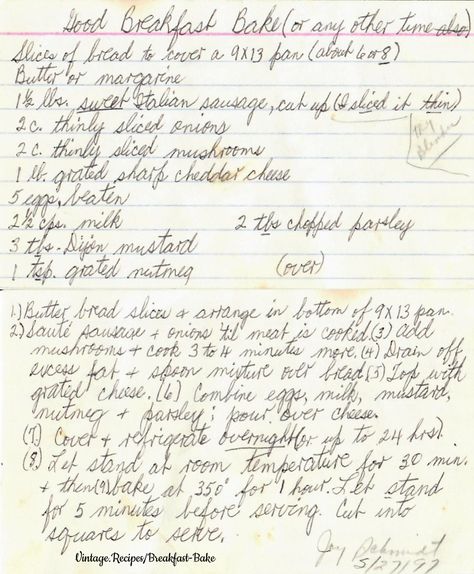 Good Breakfast Bake (or any other time also)
Slices of bread to cover a 9X13 pan (about 6 or 8)
Butter or margarine
1½ lbs. sweet Italian sausage, cut up (I sliced it thin)
2 c. thinly sliced onions
2 c. thinly sliced mushrooms
1 lb. grated sharp cheddar cheese
5 eggs, beaten
2½ cps. milk 2 tbs chopped parsley
3 tbs. Dijon mustard
1 tsp. grated nutmeg (over)
1) Butter bread slices + arrange in bottom of 9X13 pan.
2) Sauté sausage + onions 'til meat is cooked (3) add
mushrooms + cook 3 to 4 minutes more. (4) Drain off
excess fat + spoon mixture over bread (5) Top with
grated cheese. (6) Combine eggs, milk, mustard,
nutmeg + parsley; pour over cheese.
(7) Cover + refrigerate overnight (or up to 24 hrs).
(8) Let stand at room temperature for 30 min.
+ then (9) bake at 350° for 1 hour. Let stand
for 5 minutes before serving. Cut into
squares to serve.
Joy Schmidt
5/27/97
Vintage.Recipes/Breakfast-Bake